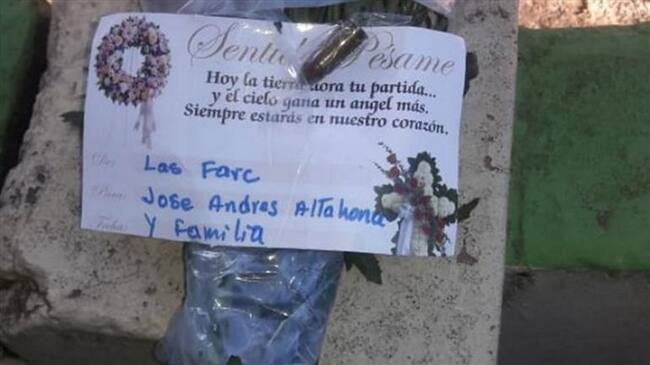 Sentido Pésame
Hoy la tierra llora tu partida...
y el cielo gana un angel más.
Siempre estarás en nuestro corazón.
De: Las Farc
Para: Jose Andres Altahona
Fecha: Y Familia